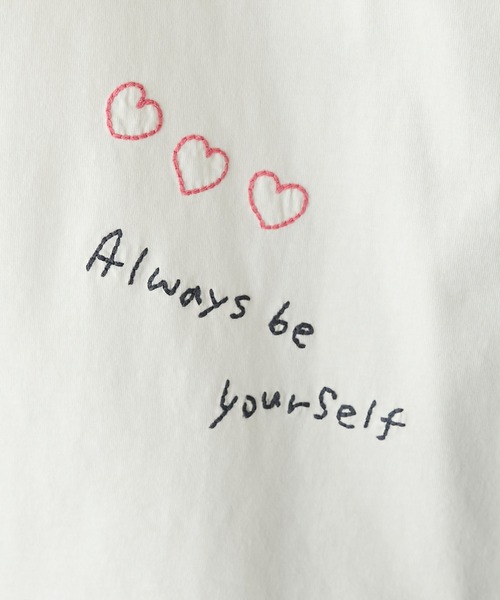 Always be
yourself